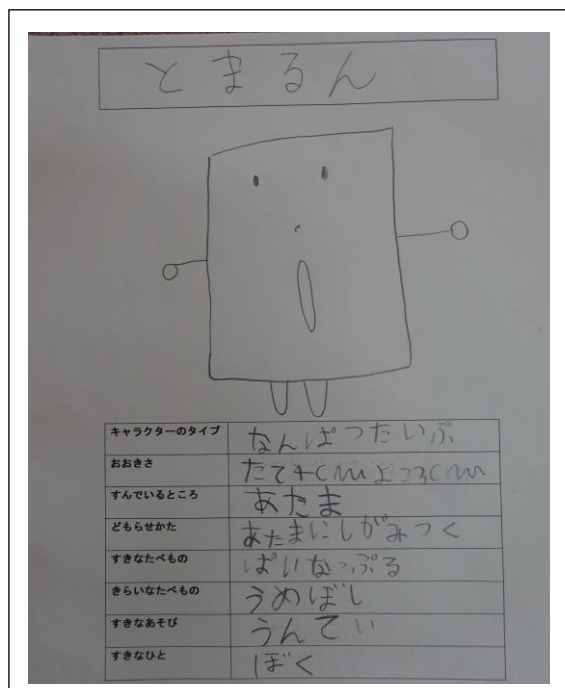 とまるん
キャラクターのタイプ なんぱつたいぷ
おおきさ たて4cmよこ3cm
すんでいるところ あたま
どもらせかた あたまにしがみつく
すきなたべもの ぱいなっぷる
きらいなたべもの うめぼし
すきなあそび うんてい
すきなひと ぼく